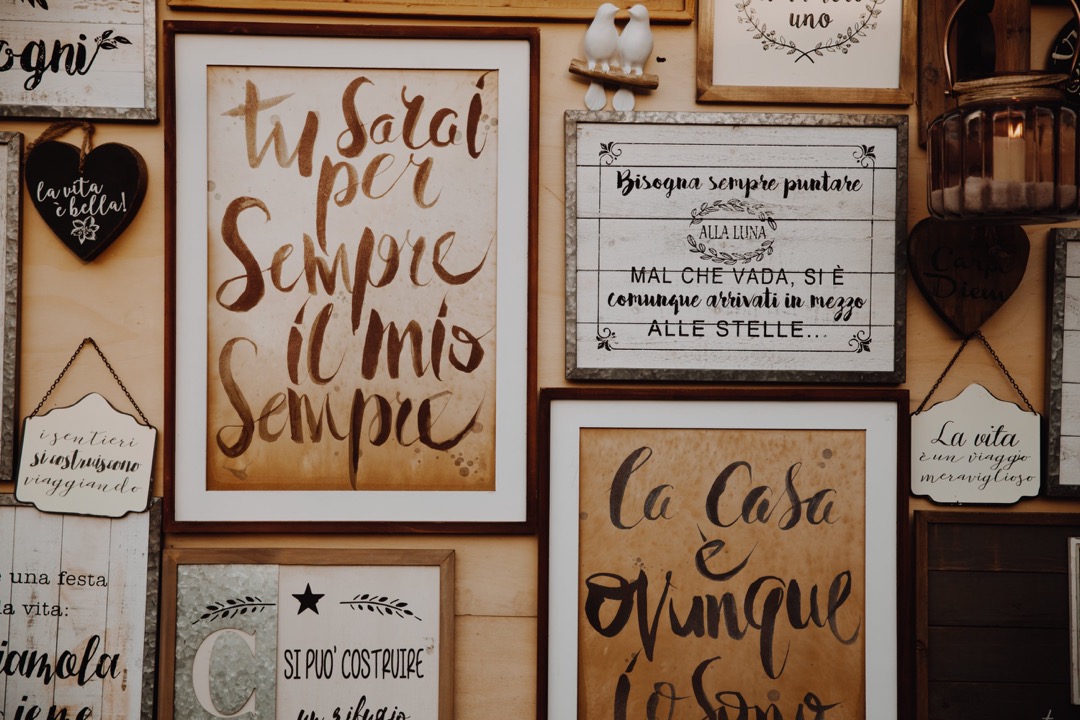 ogni
uno
la vita
è bella!
tu sarai
per
Sempre
il mio
Sempre
Bisogna sempre puntare
ALLA LUNA
MAL CHE VADA, SI È
comunque arrivati in mezzo
ALLE STELLE...
Carpe
Diem
i sentieri
si costruiscono
viaggiando
La vita
è un viaggio
meraviglioso
la casa
è
ovunque
io sono
una festa
la vita:
iamola
C
SI PUO' COSTRUIRE
un rifugio